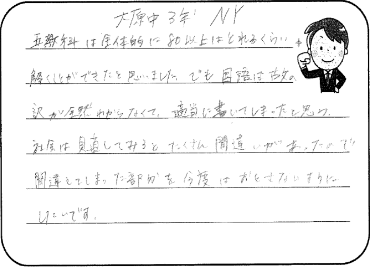 大原中3年 NY
五教科は全体的に80以上はとれるくらい
解くことができたと思いました。でも国語は古文の
訳が全然わからなくて、適当に書いてしまったと思う。
社会は見直してみるとたくさん間違いがあったので
間違えてしまった部分を今度はおとさないように
したいです。